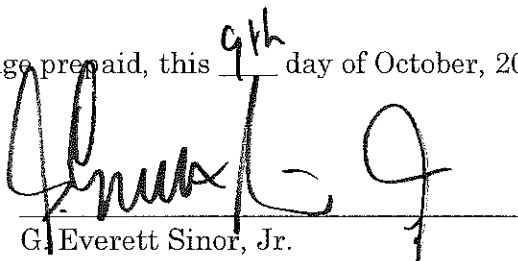 age prepaid, this 9th day of October, 20
G. Everett Sinor, Jr.